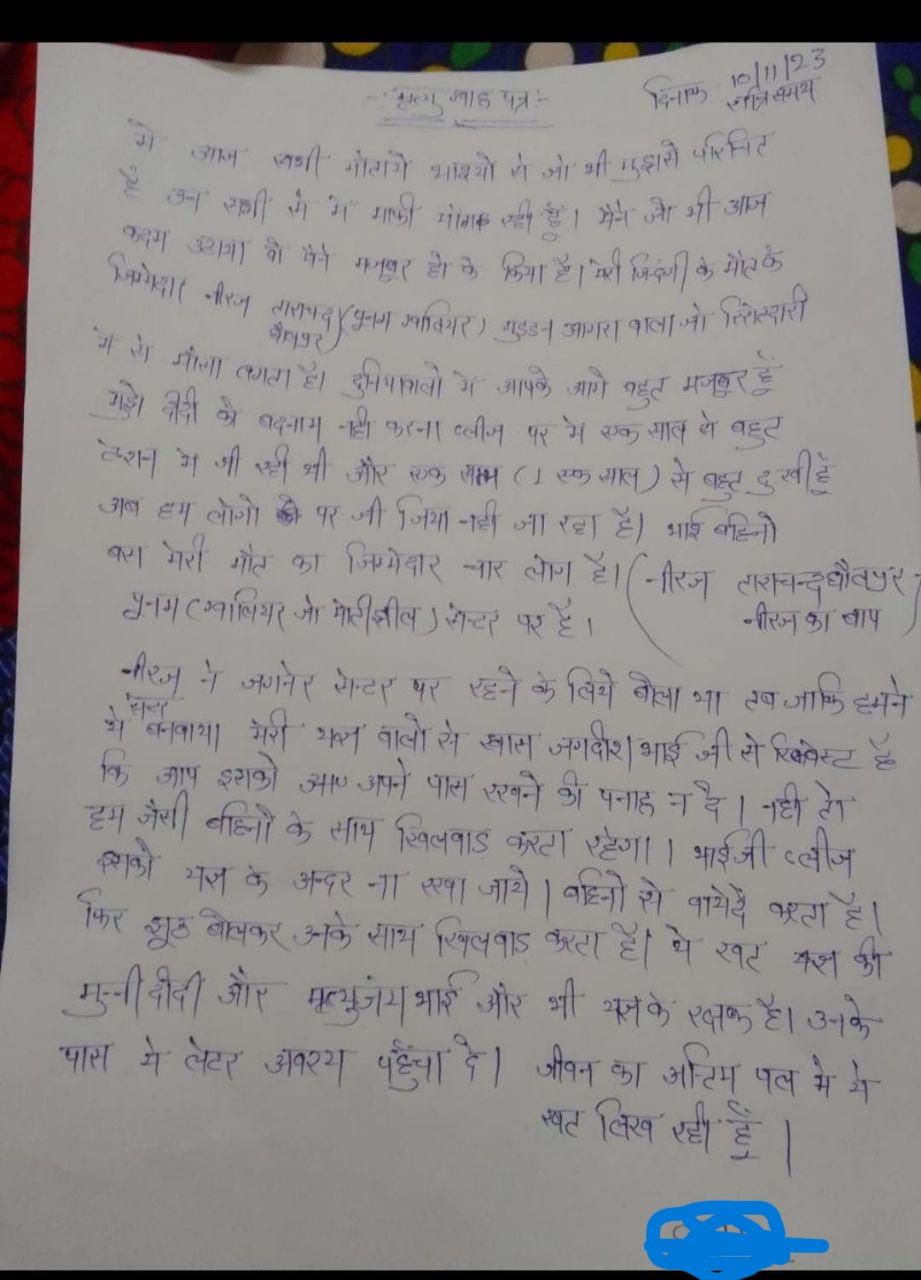 -: मृत्यु ग्वाह पत्र :-
दिनांक 10/11/23
रात्रि समय
मे आज सभी माताये भाइयो से जो भी मुझसे परिचित
है उन सभी से मे माफी मांग रही हूँ। मैने जो भी आज
कदम उठाया वो मैने मजबूर हो के किया है। मेरी जिंदगी के मौत के
जिम्मेदार नीरज ताराचन्द धौलपुर (पूनम ग्वालियर) गुड्डन आगरा वाला जो रिश्तेदारी
मे से मौसा लगता है। दुनियावालो मे आपके आगे बहुत मजबूर हूँ
मुझे दीदी को बदनाम नही करना प्लीज पर मे एक साल से बहुत
टेंशन मे जी रही थी और एक साल (1 एक साल) से बहुत दुखी हूँ
अब हम लोगो पर जी जिया नही जा रहा है। भाई बहिनो
बस मेरी मौत का जिम्मेदार चार लोग है। (नीरज ताराचन्द धौलपुर -
पूनम (ग्वालियर जो मोतीझील) सेन्टर पर है। नीरज का बाप)
नीरज ने जगनेर सेन्टर पर रहने के लिये बोला था तब जाकि हमने
ये सेन्टर बनवाया। मेरी यज्ञ वालो से खास जगदीश भाई जी से रिक्वेस्ट है
कि आप इसको आप अपने पास रखने की पनाह न दे। नही तो
हम जैसी बहिनो के साथ खिलवाड़ करता रहेगा। भाईजी प्लीज
इसको यज्ञ के अन्दर ना रखा जाये। बहिनो से वायेदें करता है।
फिर झूठ बोलकर उनके साथ खिलवाड़ करता है। ये खत यज्ञ की
मुन्नी दीदी और मृत्युंजय भाई और भी यज्ञ के रक्षक है। उनके
पास मे लेटर अवश्य पहुँचा दे। जीवन का अन्तिम पल मे ये
खत लिख रही हूँ।